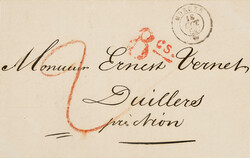 8 cs.
Monsieur Ernest Vernet
2
Duillers
près Nion